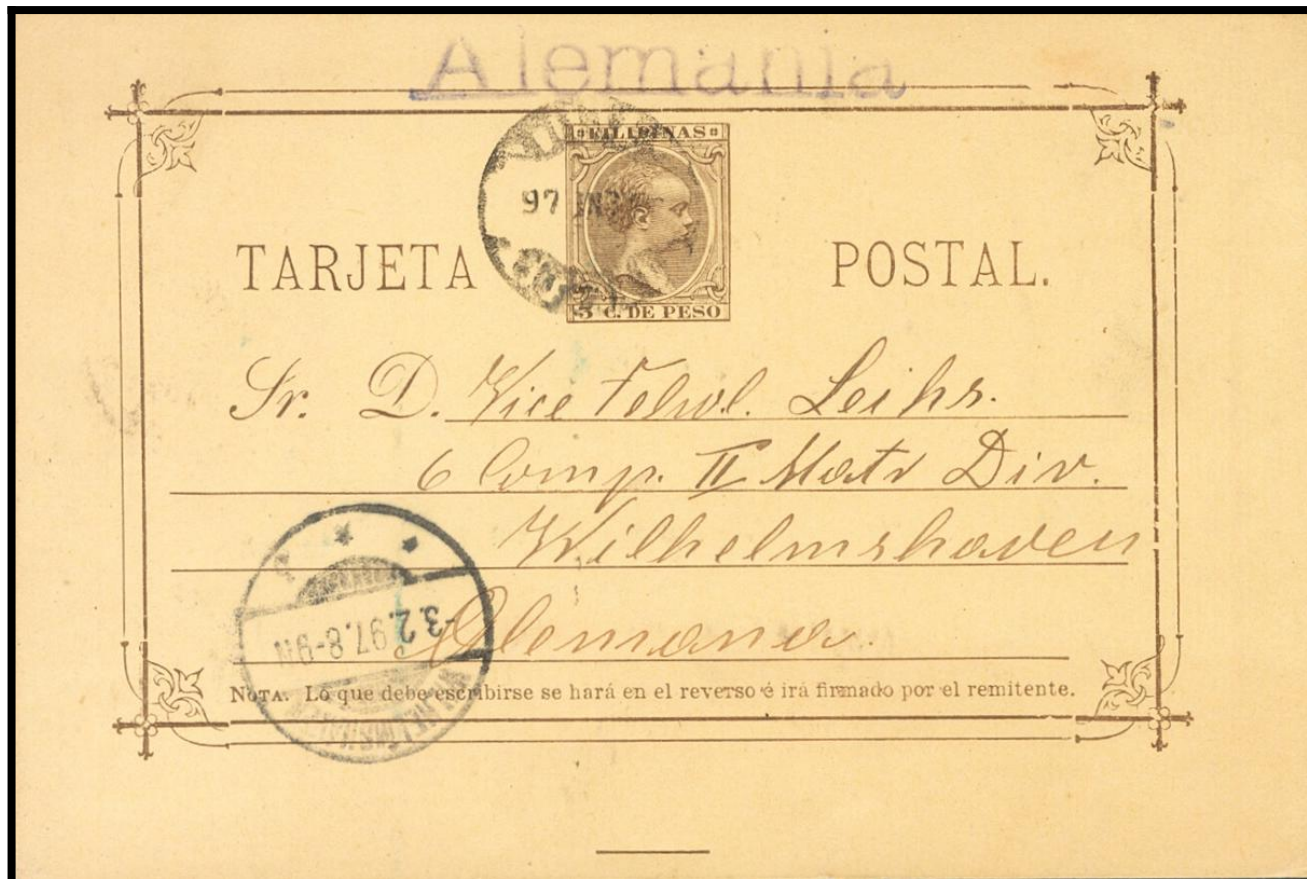 Alemania
FILIPINAS
97
TARJETA POSTAL.
3 C. DE PESO
Sr. D. Vice Felwl. Leihs.
6 Comp. II Matr Div.
Wilhelmshaven
Alemana.
-3.2.97.8-9N
WILHELMSHAVEN
NOTA. Lo que debe escribirse se hará en el reverso é irá firmado por el remitente.